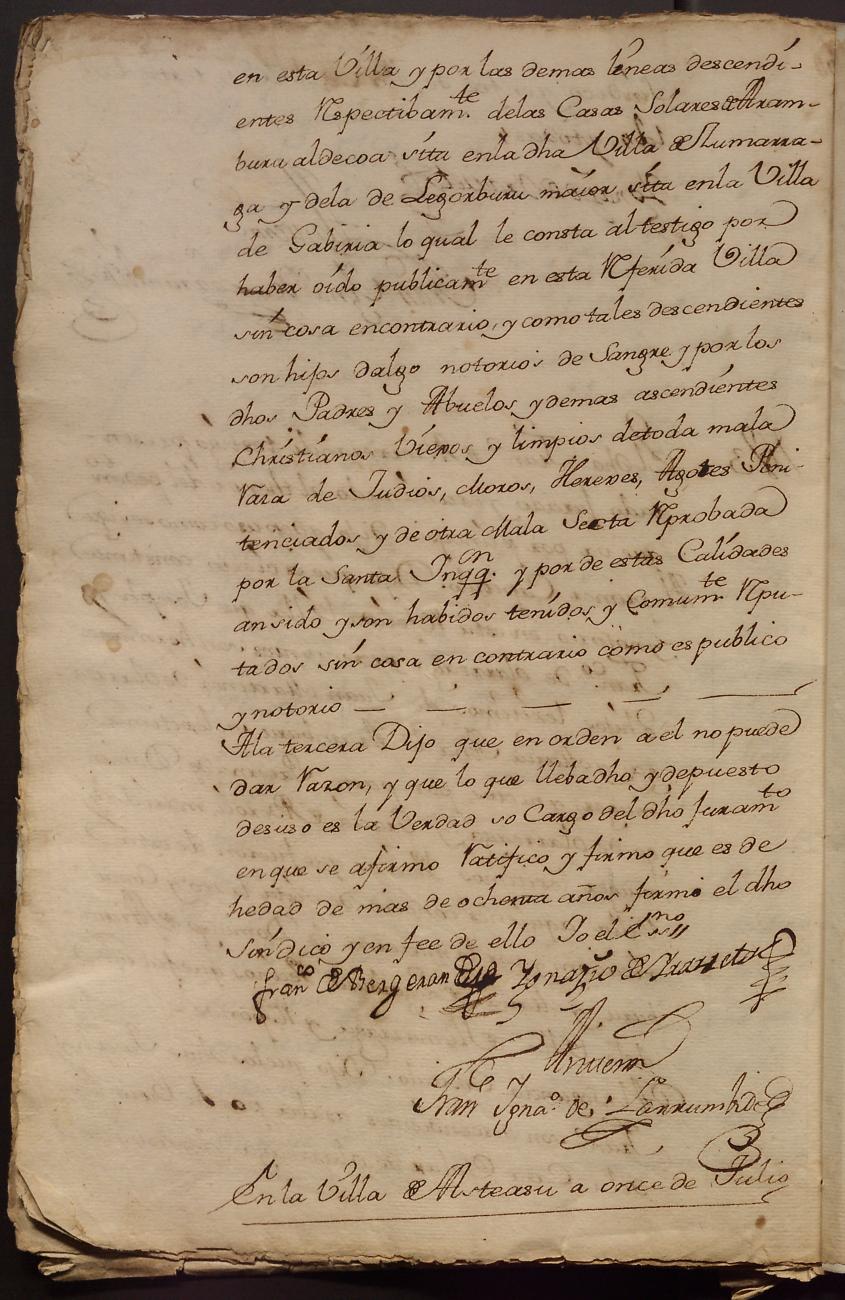 en esta Villa y por las demas lineas descendi-
entes Rspectibamte. delas Casas Solares de Aram-
buru aldecoa sita enla dha Villa de Zumarra-
ga y dela de Legorburu maior sita enla Villa
de Gabiria lo qual le consta al testigo por
haber oido publicamte en esta Rferida Villa
sin cosa encontrario, y como tales descendientes
son hijos dalgo notorios de Sangre y por los
dhos Padres y Abuelos y demas ascendientes
Christianos Viejos y limpios detoda mala
Raza de Judios, Moros, Hereges, Agotes Peni-
tenciados y de otra Mala Secta Rprobada
por la Santa Inqqn. y por de estas Calidades
an sido y son habidos tenidos y Comumte Rpu-
tados sin cosa en contrario como es publico
y notorio — — — — —
Ala tercera Dijo que en orden a el no puede
dar Razon, y que lo que lleba dho y depuesto
desuso es la Verdad so Cargo del dho Juramto
en que se afirmo Ratifico y firmo que es de
hedad de mas de ochenta años firmó el dho
Sindico y en fee de ello Yo el Esno
Frano de Bergeran Ygnazio de
Antemi
Fran Ygnao. de Larrumbide
En la Villa de Asteasu a once de Julio